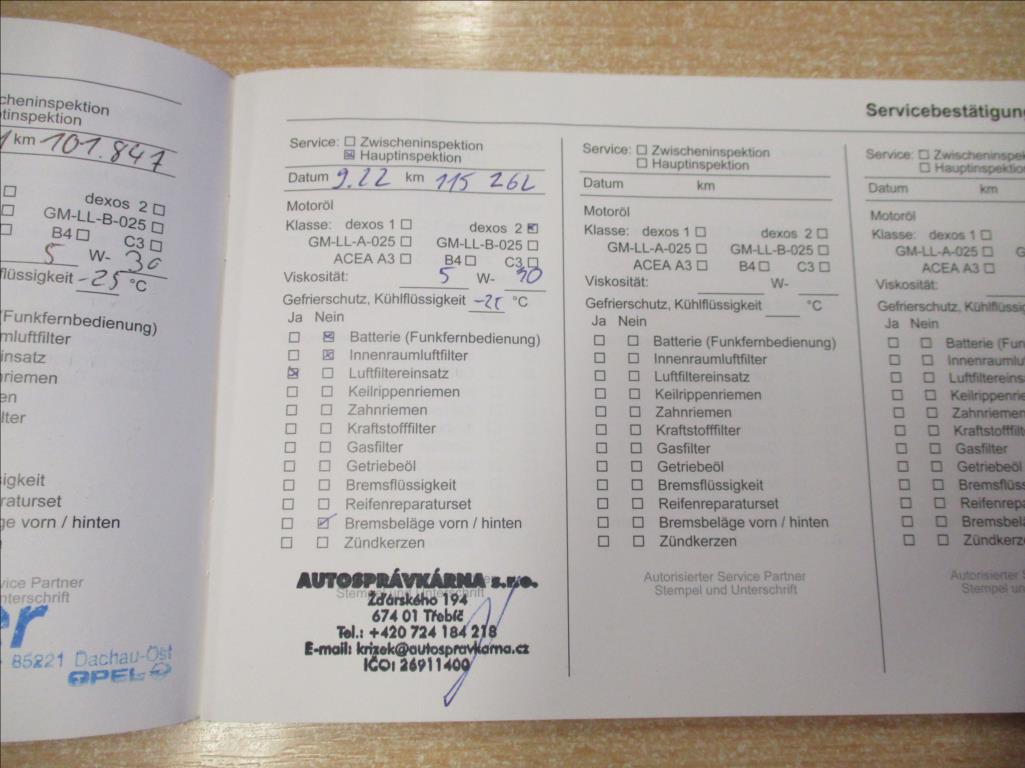 scheninspektion
ptinspektion
km 101.847
dexos 2
GM-LL-B-025
B4 C3
5 W- 30
flüssigkeit -25 °C
(Funkfernbedienung)
mluftfilter
insatz
nriemen
en
lter
sigkeit
araturset
vorn / hinten
vice Partner
nterschrift
er
85221 Dachau-Ost
OPEL
Servicebestätigun
Service: Zwischeninspektion
Hauptinspektion
Datum 9.22 km 115 262
Motoröl
Klasse: dexos 1 dexos 2
GM-LL-A-025 GM-LL-B-025
ACEA A3 B4 C3
Viskosität: 5 W-
Gefrierschutz, Kühlflüssigkeit °C
Ja Nein
Batterie (Funkfernbedienung)
Innenraumluftfilter
Luftfiltereinsatz
Keilrippenriemen
Zahnriemen
Kraftstofffilter
Gasfilter
Getriebeöl
Bremsflüssigkeit
Reifenreparaturset
Bremsbeläge vorn / hinten
Zündkerzen
Stempel und Unterschrift
AUTOSPRÁVKÁRNA s.r.o.
Žďárského 194
674 01 Třebíč
Tel.: +420 724 184 218
E-mail: krizek@autospravkarna.cz
IČO: 26911400
Service: Zwischeninspektion
Hauptinspektion
Datum km
Motoröl
Klasse: dexos 1 dexos 2
GM-LL-A-025 GM-LL-B-025
ACEA A3 B4 C3
Viskosität: W-
Gefrierschutz, Kühlflüssigkeit °C
Ja Nein
Batterie (Funkfernbedienung)
Innenraumluftfilter
Luftfiltereinsatz
Keilrippenriemen
Zahnriemen
Kraftstofffilter
Gasfilter
Getriebeöl
Bremsflüssigkeit
Reifenreparaturset
Bremsbeläge vorn / hinten
Zündkerzen
Autorisierter Service Partner
Stempel und Unterschrift
Service: Zwischeninspek
Hauptinspektion
Datum km
Motoröl
Klasse: dexos 1
GM-LL-A-025
ACEA A3
Viskosität:
Gefrierschutz, Kühlflüssig
Ja Nein
Batterie (Fun
Innenraumluft
Luftfiltereins
Keilrippenrie
Zahnriemen
Kraftstofffilt
Gasfilter
Getriebeöl
Bremsflüss
Reifenrepa
Bremsbelä
Zündkerze
Autorisierter Se
Stempel und